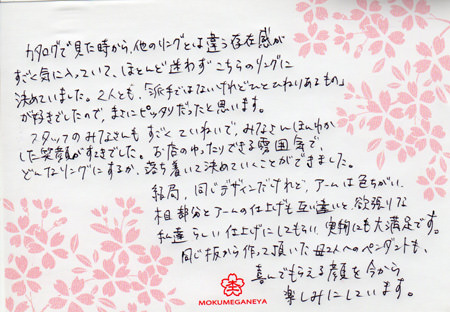 カタログで見た時から、他のリングとは違う存在感が
すごく気に入っていて、ほとんど迷わずこちらのリングに
決めていました。2人とも、「派手ではないけれどひとひねりあるもの」
が好きでしたので、まさにピッタリだったと思います。
スタッフのみなさんもすごくていねいで、みなさんほんわか
した笑顔がすてきでした。お店のゆったりできる雰囲気で、
どんなリングにするか、落ち着いて決めていくことができました。
結局、同じデザインだけれど、アームは色ちがい、
杢目部分とアームの仕上げも互い違いと、欲張りな
私達らしい仕上げにしてもらい、2人共にも大満足です。
同じ板から作って頂いた母2人へのペンダントも、
喜んでもらえる顔を今から
楽しみにしています。
MOKUMEGANEYA